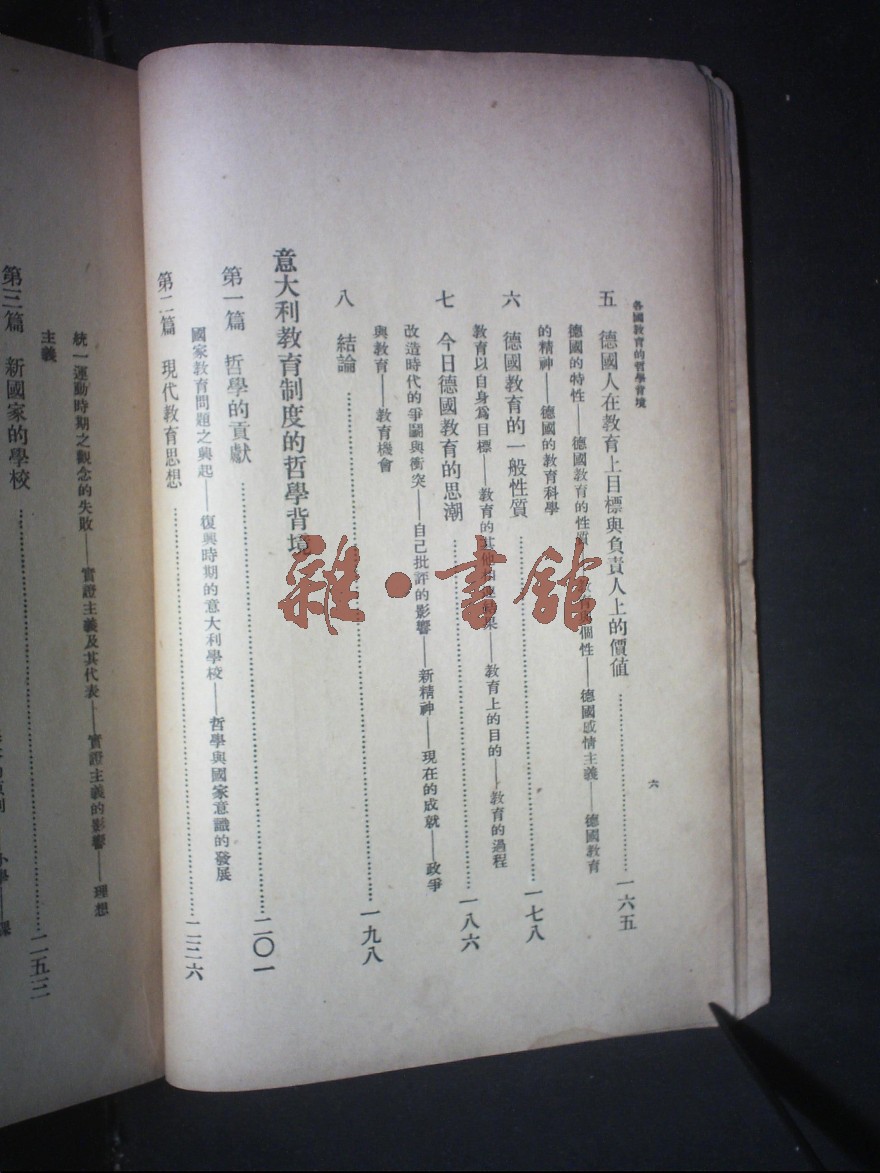 各國教育的哲學背境
六
五 德國人在教育上目標與負責人上的價值 一六五
德國的特性——德國教育的性質——個性——德國感情主義——德國教育
的精神——德國的教育科學
六 德國教育的一般性質 一七八
教育以自身爲目標——教育的其他——教育上的目的——教育的過程
七 今日德國教育的思潮 一八六
改造時代的爭鬭與衝突——自己批評的影響——新精神——現在的成就——政爭
與教育——教育機會
八 結論 一九八
意大利教育制度的哲學背境
第一篇 哲學的貢獻 二〇一
國家教育問題之興起——復興時期的意大利學校——哲學與國家意識的發展
第二篇 現代教育思想 二二六
統一運動時期之觀念的失敗——實證主義及其代表——實證主義的影響——理想
主義
第三篇 新國家的學校 二五三
雜·書館